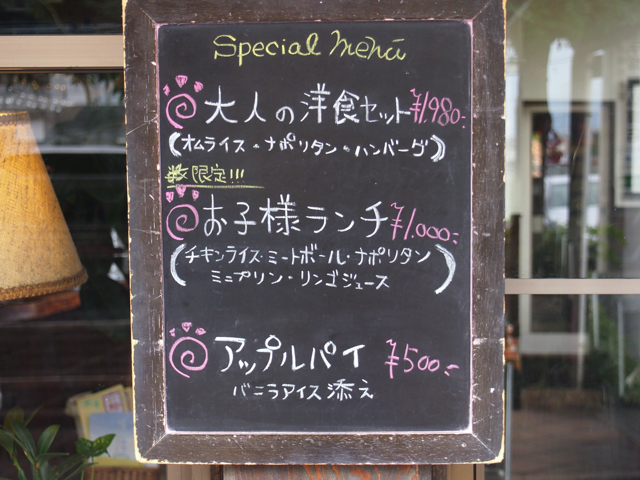 Special menu
大人の洋食セット ¥1,980-
(オムライス・ナポリタン・ハンバーグ)
数限定!!!
お子様ランチ ¥1,000-
(チキンライス・ミートボール・ナポリタン
ミニプリン・リンゴジュース)
アップルパイ ¥500-
バニラアイス添え